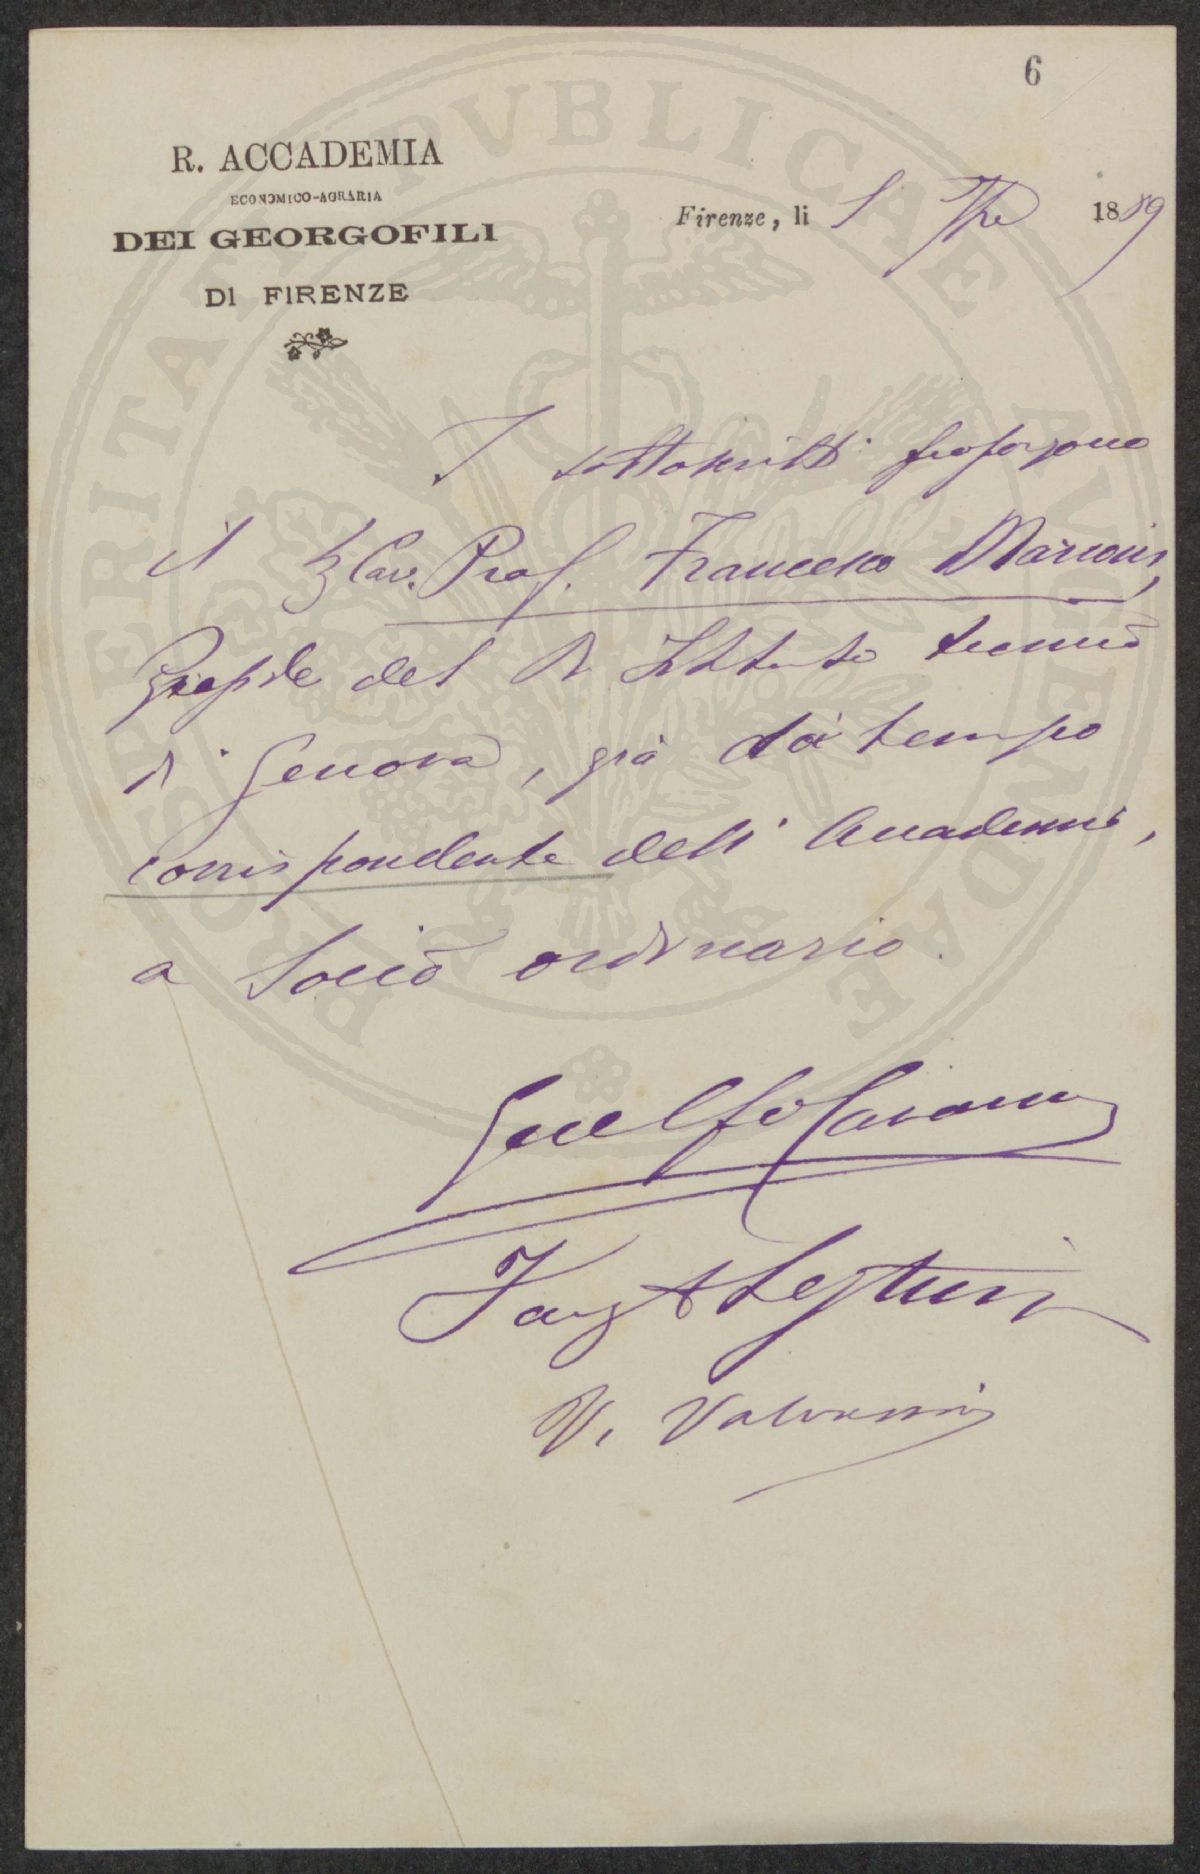 6
R. ACCADEMIA
ECONOMICO-AGRARIA
DEI GEORGOFILI
DI FIRENZE
Firenze, li 1889
PROSPERITATI PVBLICAE AVGENDAE
I sottoscritti propongono
il Cav. Prof. Francesco Marconi,
Preside del R Istituto tecnico
di Genova, già da tempo
corrispondente dell' Accademia,
a Socio ordinario.
Guelfo Cavanna
V. Valvassori